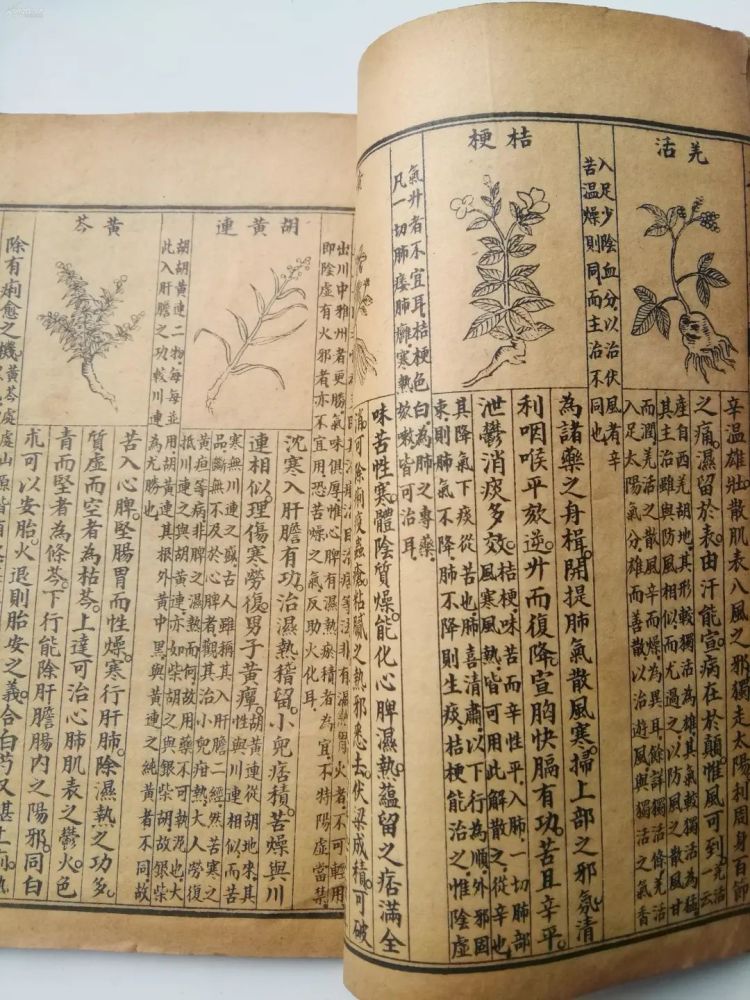 羌活
辛溫雄壯散肌表八風之邪獨走太陽利周身百節
之痛濕留於表由汗能宣病在於顛惟風可到羌活一云
產自西羌胡地其形較獨活為雄其氣較獨活為猛
其主治雖與防風相似而尤過之以防風之散風甘
而潤羌活之散風辛而燥為異耳餘詳獨活條羌活
入足太陽氣分雄而善散以治遊風與獨活之氣香
入足少陰血分以治伏風者辛
苦溫燥則同而主治不同也
桔梗
為諸藥之舟楫開提肺氣散風寒掃上部之邪氛清
利咽喉平欬逆升而復降宣胸快膈有功苦且辛平
泄鬱消痰多效桔梗味苦而辛性平入肺一切肺部
風寒風熱皆可用此解散之從辛也
其降氣下痰從苦也肺喜清肅以下行為順外邪固
束則肺氣不降肺不降則生痰桔梗能治之惟陰虛
氣升者不宜耳桔梗色白為肺之專藥
凡一切肺痿肺癰寒熱欬嗽皆可治耳
味苦性寒體陰質燥能化心脾濕熱蘊留之痞滿全
消可除痢疫蟲瘡粘膩之熱邪悉去伏梁成積可破
出川中雅州者更勝氣味俱厚惟心脾有濕熱瘀積者為宜不特陽虛當禁
即陰虛有火邪者亦不宜用恐苦燥之氣反助火化耳
胡黃連
沈寒入肝膽有功治濕熱稽留小兒痞積苦燥與川
連相似理傷寒勞復男子黃癉胡黃連從胡地來其
性與川連相似而苦
寒無川連之盛古人雖稱其入肝膽二經然苦寒之
品斷無不及於心脾者觀其治小兒疳熱大人勞復
黃疸等病非脾之濕熱而何故用藥不可執泥也大
抵川連之與胡黃連亦如柴胡之與銀柴胡故銀柴
胡胡黃連二物每每並用胡黃連其根外黃中黑與黃連之純黃者不同故
此入肝膽之功較川連為尤勝也
黃芩
苦入心脾堅腸胃而性燥寒行肝肺除濕熱之功多
質虛而空者為枯芩上達可治心肺肌表之鬱火色
青而堅者為條芩下行能除肝膽腸內之陽邪同白
朮可以安胎火退則胎安之義合白芍又堪止痢熱
除有痢愈之機黃芩處處山原皆有